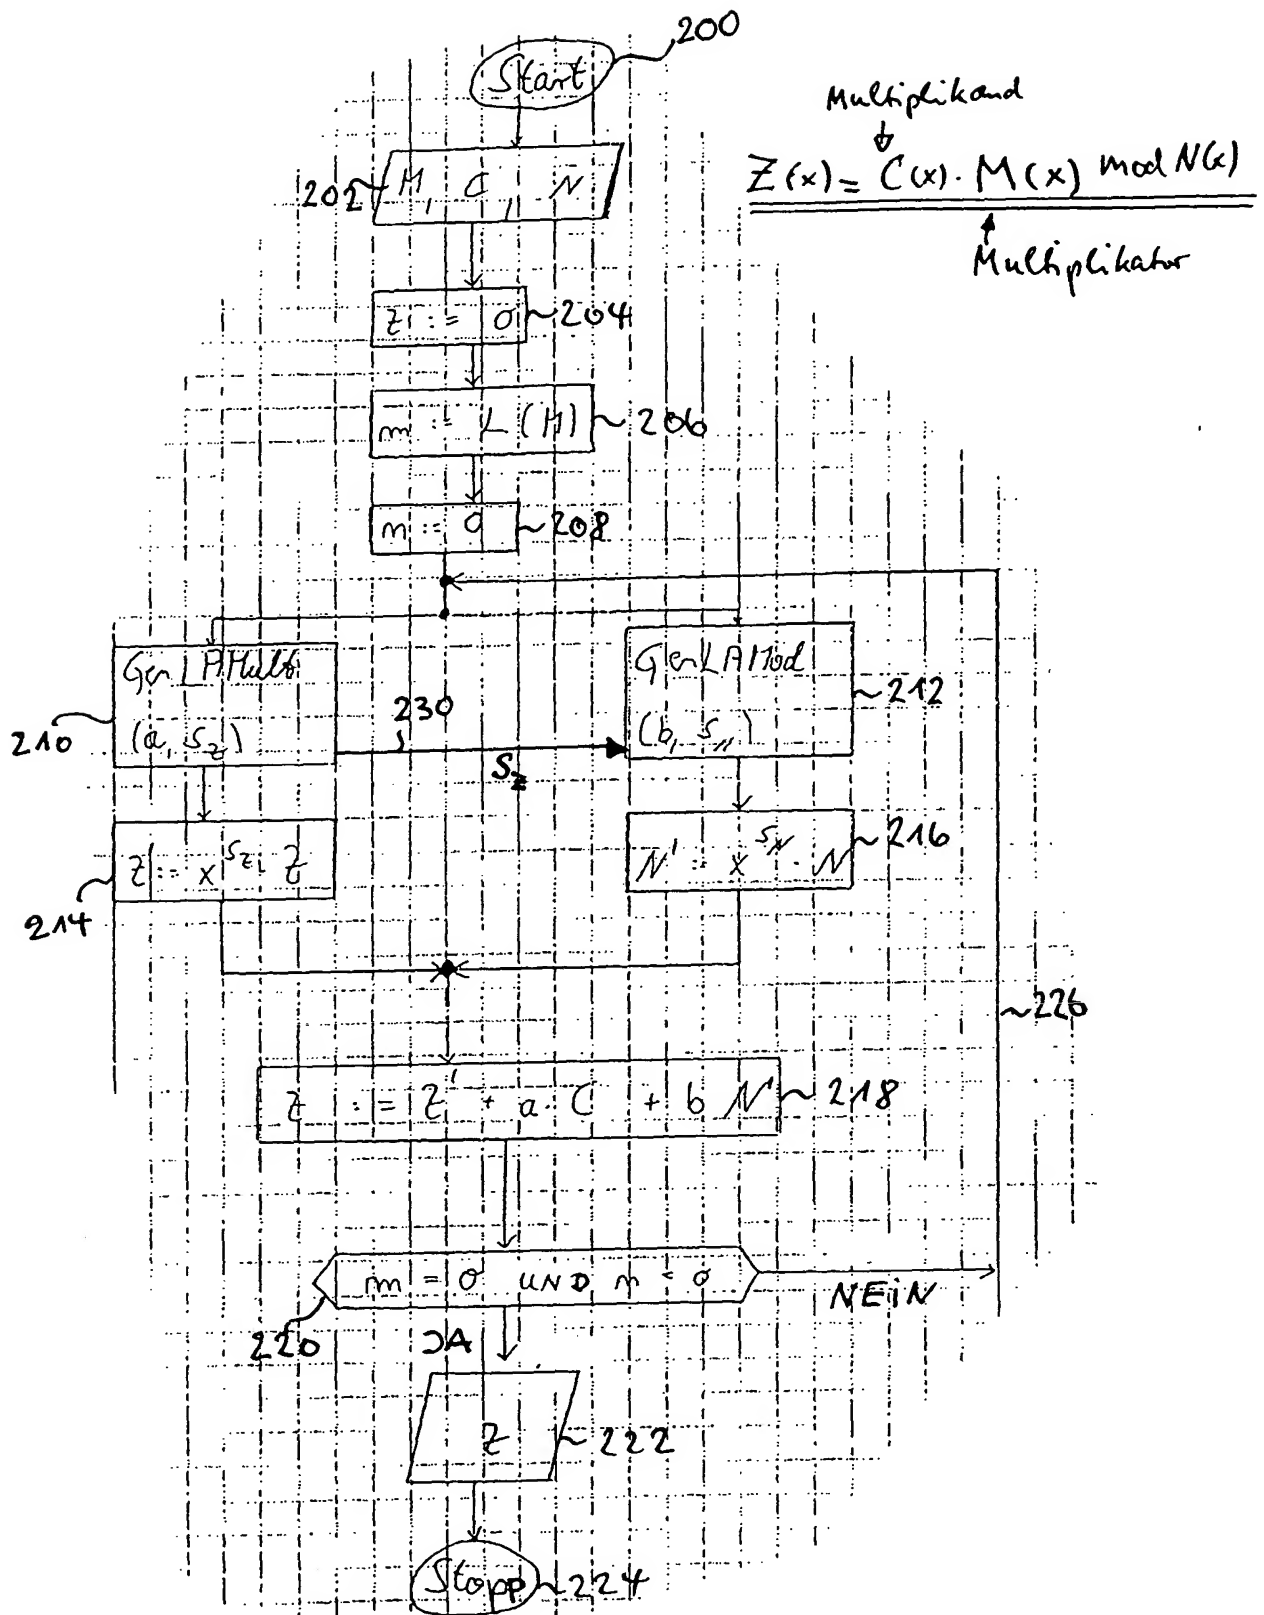 200
Start
Multiplikand
Z(x) = C(x) · M(x) mod N(x)
Multiplikator
202
M, C, N
Z := 0
204
m := L(M)
206
n := 0
208
GenLAMult
(a, s_z)
210
230
s_z
GenLAMod
(b, s_N)
212
Z' := x^{s_z} · Z
214
N' := x^{s_N} · N
216
226
Z := Z' + a · C + b N'
218
m = 0 UND n = 0
220
NEiN
JA
Z
222
Stopp
224